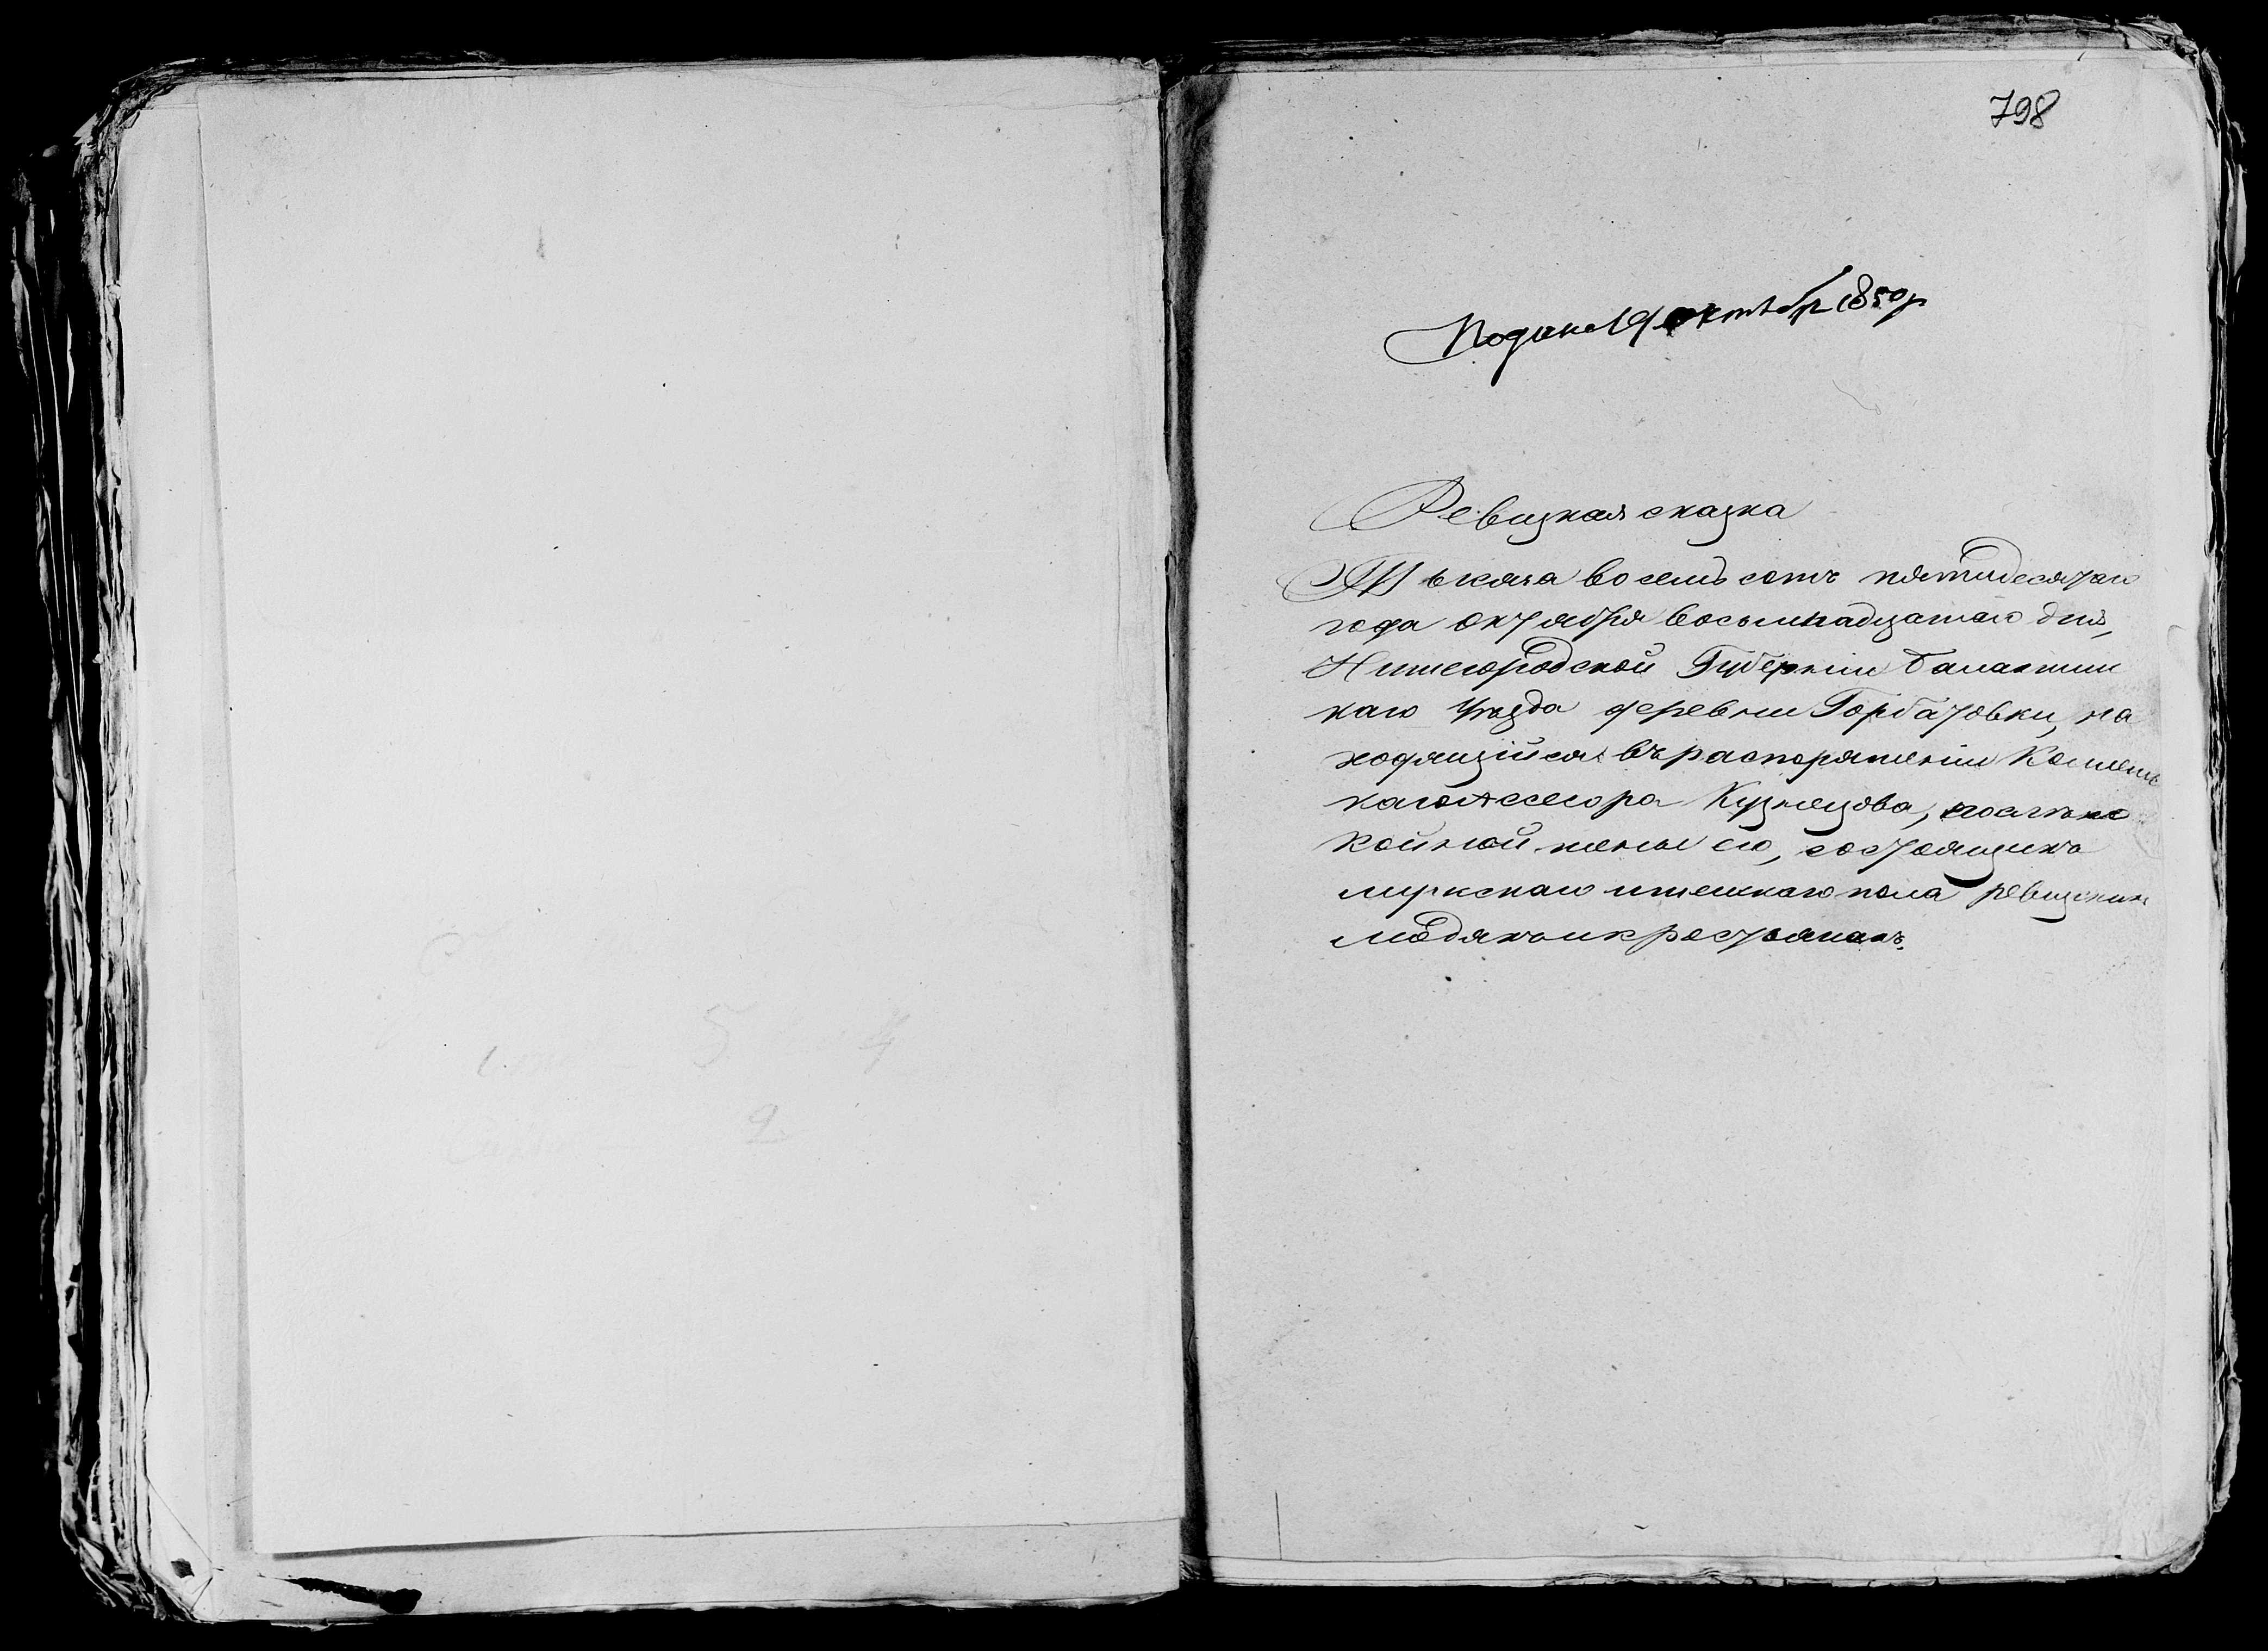 798
Подана 19 октября 1850 г
Ревизкая сказка
Тысяча восемь сотъ пятидесятаго
года октября восьмнадцатаго дня,
Нижегородской Губерніи Балахнин
каго Уѣзда деревни Горбатовки, на
ходящійся въ распоряженіи Коллежс
каго Асесора Кузнецова, после по
койной жены его, состоящихъ
мужскаго и женскаго пола ревизскихъ
людяхъ и крестьянахъ.
5 4
2